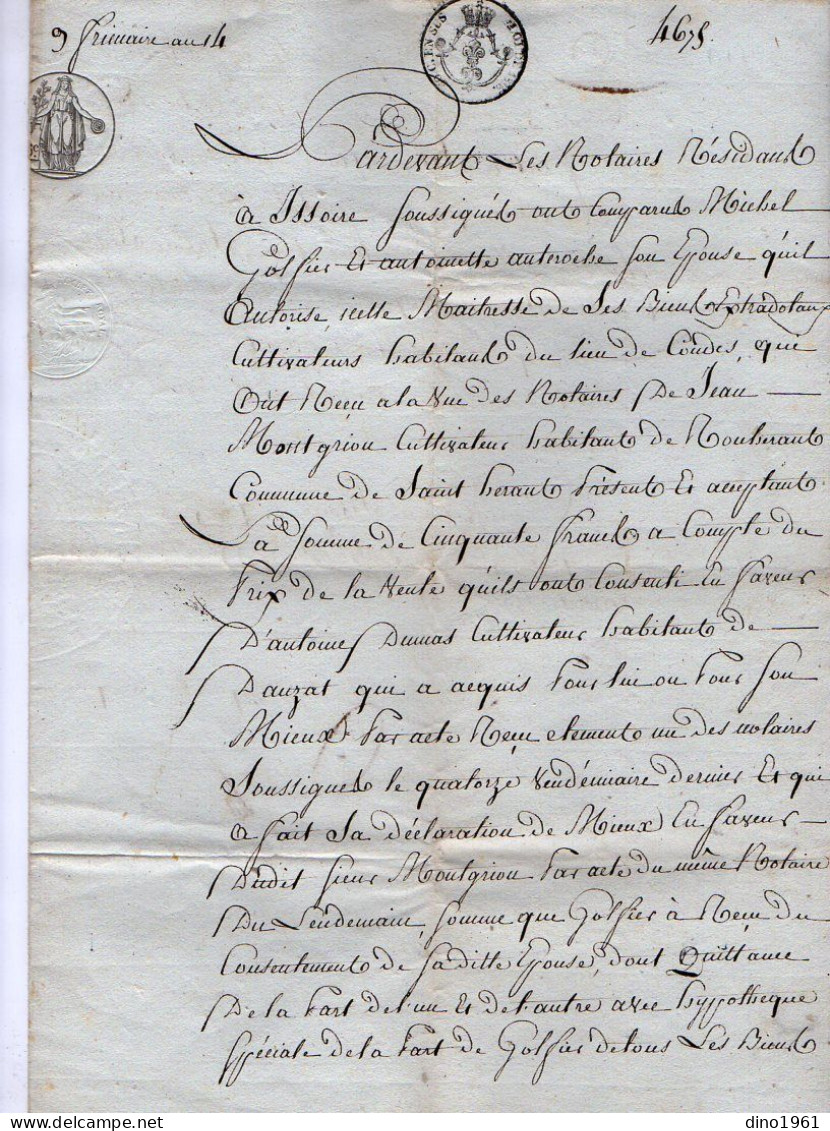 9 frimaire an 14
4675.
Pardevant Les Notaires Résidants
à Issoire soussignés ont Comparus Michel
Golfier Et antoinette auteroche son Epouse qu'il
Autorise, icelle Maitresse de Ses Biens Extradotaux
Cultivateurs habitants du lieu de Coudes, que
Ont Reçu a la vue des Notaires De Jean
Montgrion Cultivateur habitant de Nouherant
Commune de Saint herant Présent Et acceptant
La somme de Cinquante francs a Compte du
Prix de la Vente qu'ils ont Consenti En faveur
D'antoine Dumas Cultivateur habitant de
Dauzat qui a acquis Pour lui ou Pour son
Mieux Par acte Reçu clement un des notaires
Soussignés le quatorze Vendémiaire dernier Et qui
a fait Sa déclaration de Mieux En faveur
Dudit sieur Montgrion Par acte du même Notaire
Du Lendemain, somme que Golfier à Reçu du
Consentement de saditte Epouse, dont Quittance
De la Part de l'un Et de l'autre avec hypotheque
spéciale de la Part de Golfier de tous Les Biens
dino1961